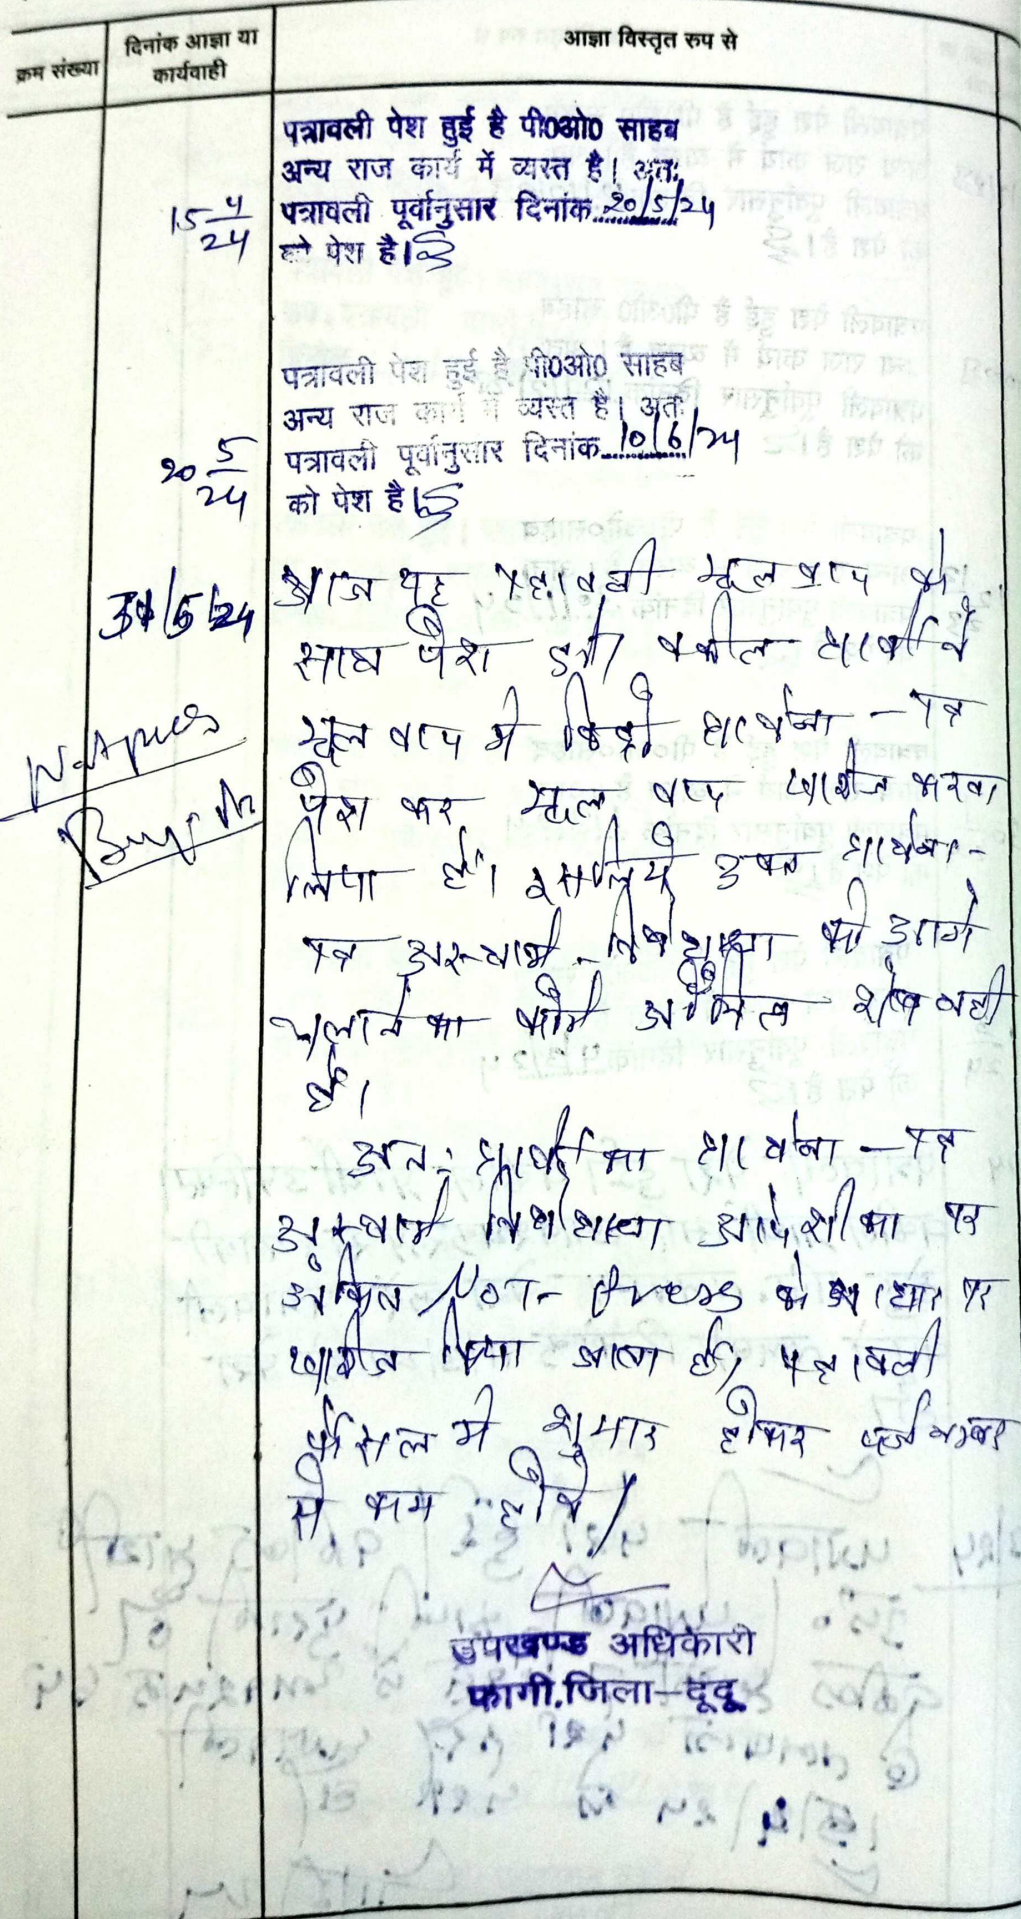 क्रम संख्या
दिनांक आज्ञा या
कार्यवाही
आज्ञा विस्तृत रुप से
पत्रावली पेश हुई है पी0ओ0 साहब
अन्य राज कार्य में व्यस्त है। अतः
15 4/24
पत्रावली पूर्वानुसार दिनांक 20/5/24
को पेश है।
पत्रावली पेश हुई है पी0ओ0 साहब
अन्य राज कार्य में व्यस्त है। अतः
20 5/24
पत्रावली पूर्वानुसार दिनांक 10/6/24
को पेश है।
31/5/24
आज यह पत्रावली मूल वाद के
साथ पेश हुई। वकील प्रार्थी ने
मूल वाद में प्रार्थना-पत्र
पेश कर मूल वाद खारीज करवा
लिया है। इसलिये उक्त प्रार्थना-
पत्र अस्थाई निषेधाज्ञा को आगे
चलाने का कोई औचित्य शेष नही
है।
अतः प्रार्थी का प्रार्थना-पत्र
अस्थाई निषेधाज्ञा आदेशीका पर
अंकित Not-Press के आधार पर
खारीज किया जाता है। पत्रावली
फैसल में शुमार होकर दर्ज नम्बर
से कम होवे।
उपखण्ड अधिकारी
फागी.जिला-दूदू